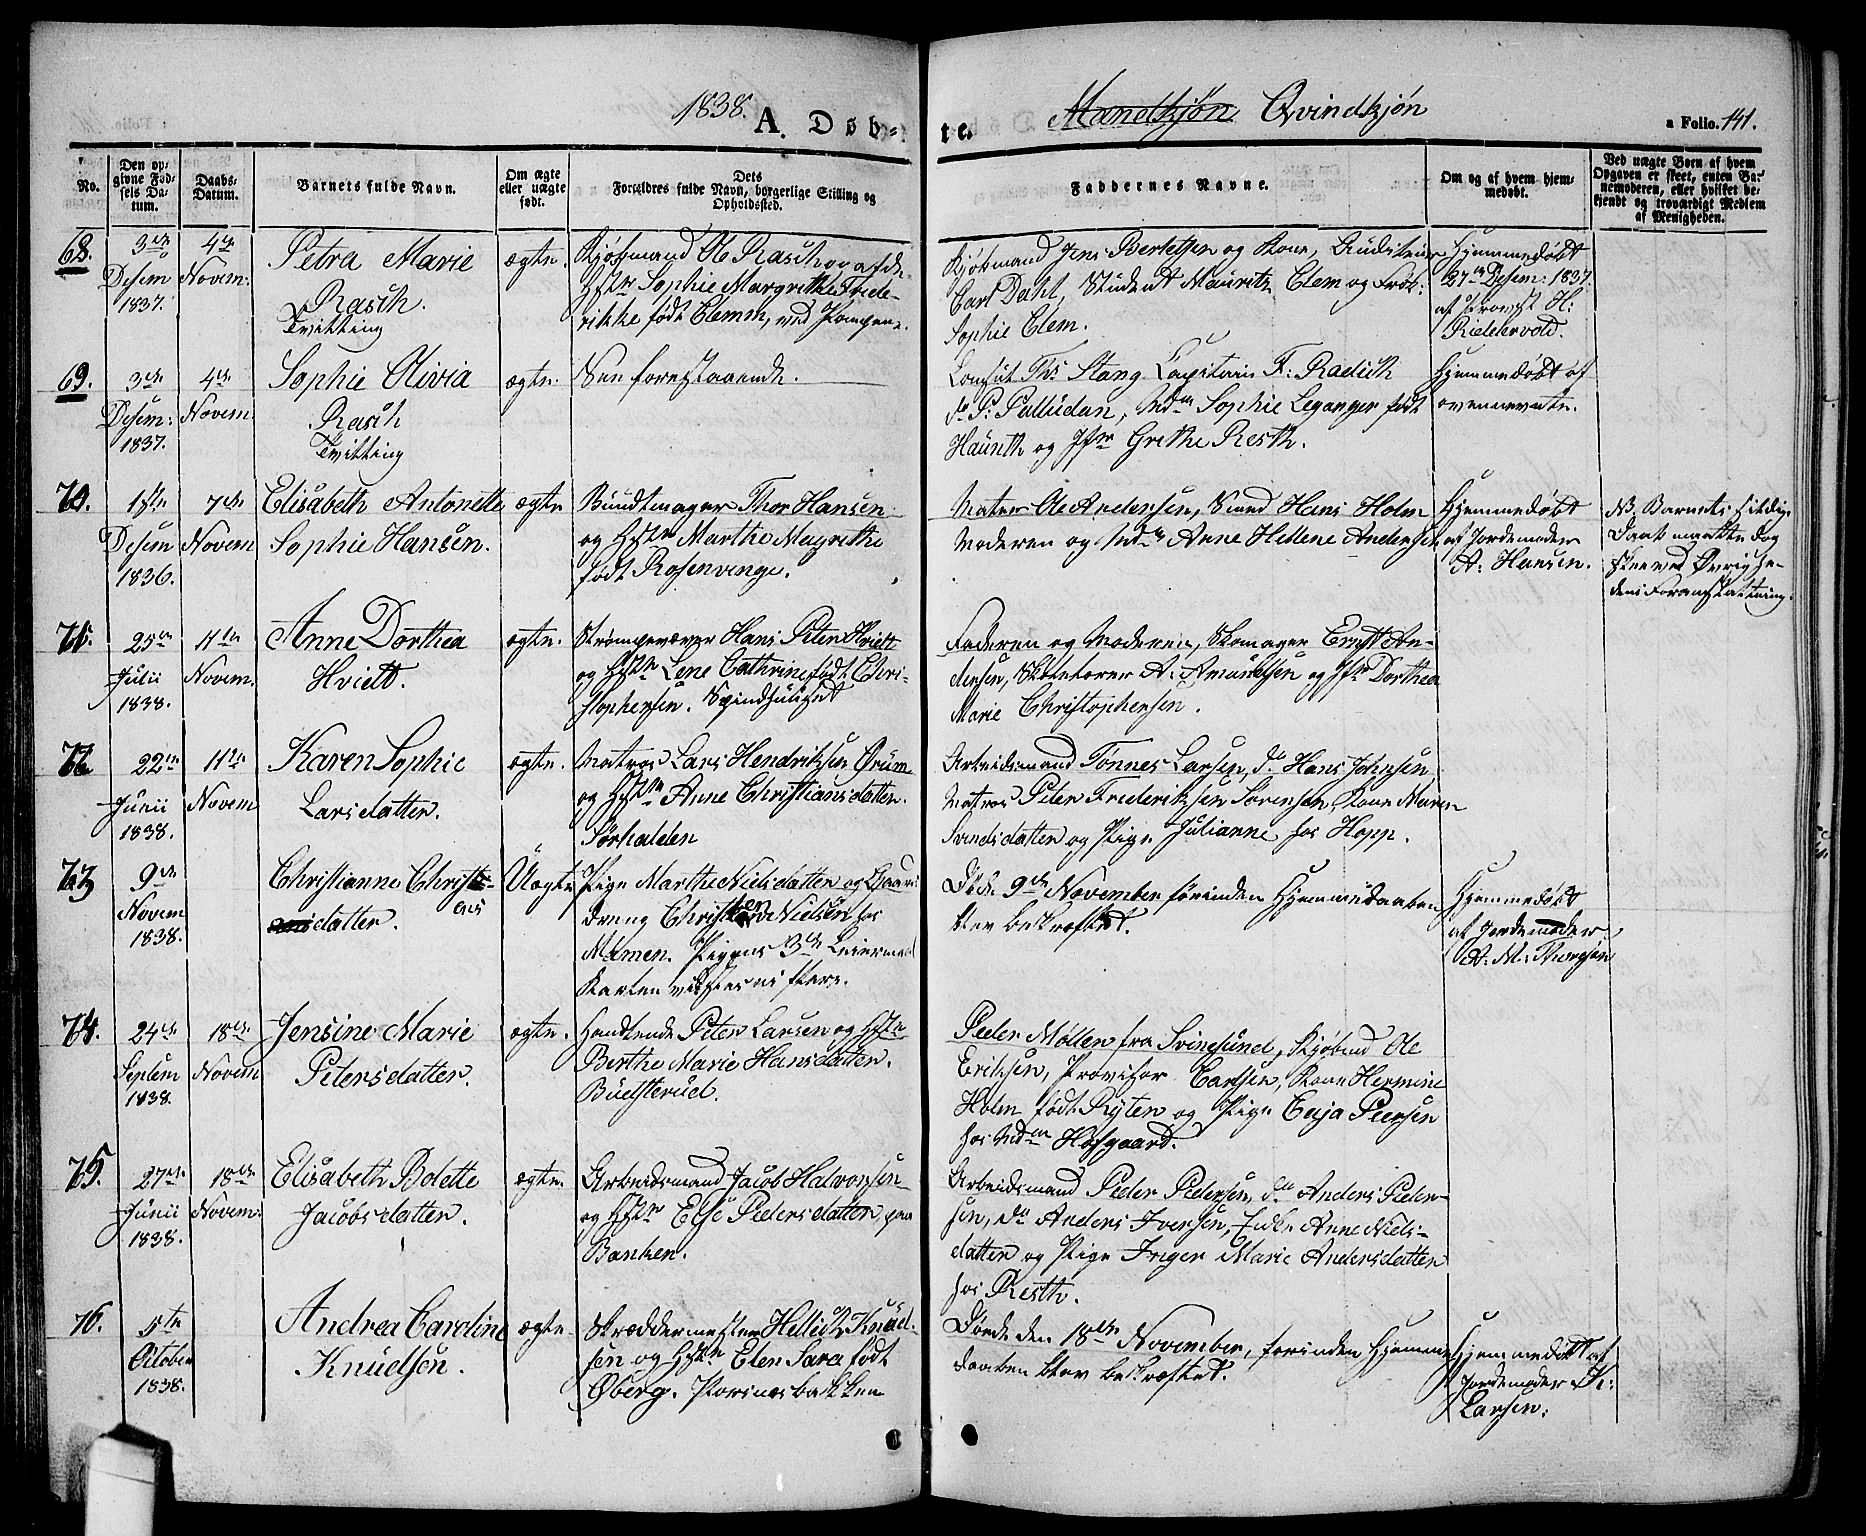 1838.
A. Døb-
te.
Mandkjøn Qvindkjøn
a Folio. 141.
No.
Den opgivne Fødsels Datum.
Daabs-Datum.
Barnets fulde Navn.
Om ægte eller uægte født.
Forældres fulde Navn, borgerlige Stilling og Dets Opholdssted.
Faddernes Navne.
Om og af hvem hjemmedøbt.
Ved uægte Børn af hvem Opgaven er skeet, enten Barnemoderen, eller hvilket bekjendt og troværdigt Medlem af Menigheden.
68.
3die
Desem
1837.
4de
Novem:
Petra Marie
Rasch.
Tvilling
ægte.
Kjøbmand Ole Rasch og afdø.
Hstr Sophie Margrethe Frede-
rikke født Clemm, ved
Kjøbmand Jens Bertelsen og Kone, Auditeur
Carl Dahl, Student Mauritz Clem og Frøk:
Sophie Clem.
Hjemmedøbt
27de Desem: 1837
af Provst H:
Riddervold.
69.
3die
Desem:
1837.
4de
Novem
Sophie Olivia
Rasch
Tvilling
ægte.
See forestaaende.
Consul Ths Stang Capitain F: Radich
do P: Palludan, Md Sophie Leganger født
Haunth og Jfr Grethe Resth.
Hjemmedøbt af
ovennevnte.
70.
1ste
Desem
1836.
7de
Novem
Elisabeth Antonette
Sophie Hansen.
ægte
Bundtmager Thor Hansen
og Hstr Marthe Magrethe
født Rosenvinge.
Mater Ole Andersen, Smed Hans Holm
Moderen og Md Anne Hellene Andersen
Hjemmedøbt
af Jordemoder
A: Hansen.
NB. Barnets sildige
Daab maatte dog
skee ved Øvrighe-
dens Foranstaltning.
71.
25de
Julii
1838.
11te
Novem.
Anne Dorthea
Hvidt.
ægte.
Strømpevæver Hans Peter Hvidt
og Hstr Lene Cathrine født Chri-
stophersen.
Faderen og Moderen, Skomager Ernst An-
dersen, A: Amundsen og Jfr Dorthea
Marie Christophersen.
72
22de
Junii
1838.
11te
Novem
Karen Sophie
Larsdatter.
ægte.
Matros Lars Hendriksen Ørum
og Hstr Anne Christiansdatter.
Sørhalden
Arbeidsmand Tønnes Larsen, do Hans Johnsen,
Matros Peter Frederiksen Sørensen, Kone Maren
Svendsdatter og Pige Julianne hos Hopp.
73
9de
Novem
1838.
Christianne Christi-
ans
datter.
Uægte
Pige Marthe Nielsdatter og Gaard
dreng Christen Nielsen hos
Mamen. Pigens 3die Leiermaal
Karlen vidstes ei flere.
Døde 9de November førinden Hjemmedaaben
blev bekræftet.
Hjemmedøbt
af Jordemoder
A: M: Thoresen
74.
24de
Septem
1838.
18de
Novem
Jensine Marie
Petersdatter.
ægte.
Handlende Peter Larsen og Hstr
Berthe Marie Hansdatter.
Büdsterüd.
Peder Møller fra Svinesund, Kjøbmd Ole
Eriksen, Provisor Carlsen, Kone Hermine
Holm født Ryten og Pige Caja Peersen
hos Md Hofgaard.
75.
27de
Junii
1838.
18de
Novem:
Elisabeth Bolette
Jacobsdatter.
ægte.
Arbeidsmand Jacob Halvorsen
og Hstr Else Pedersdatter, paa
Banken.
Arbeidsmand Peder Pedersen, do Anders Peder-
sen, do Anders Iversen, Enke Anne Niels-
datter og Pige Inger Marie Andersdatter
hos Resth.
76.
5te
October
1838.
Andrea Caroline
Knudsen.
ægte
Skræddermester Knud-
sen og Hstr Elen Sara født
Øberg. Porsnesbakken
Døde den 18de November, førinden Hjemme-
daaben blev bekræftet.
Hjemmedøbt af
Jordemoder K:
Larsen: